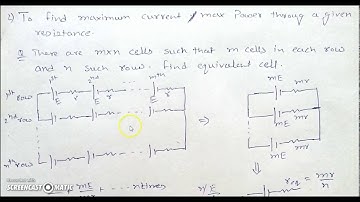 2) To find maximum current / max Power throug a given
resistance.
Q There are mxn cells such that m cells in each row
and n such row. find equivalent cell.
1st 2nd mth
1st row E r E r E r mE mr
2nd row ⇒
nth row
mE + ... n times req = mr/n
RECORDED WITH
SCREENCAST MATIC